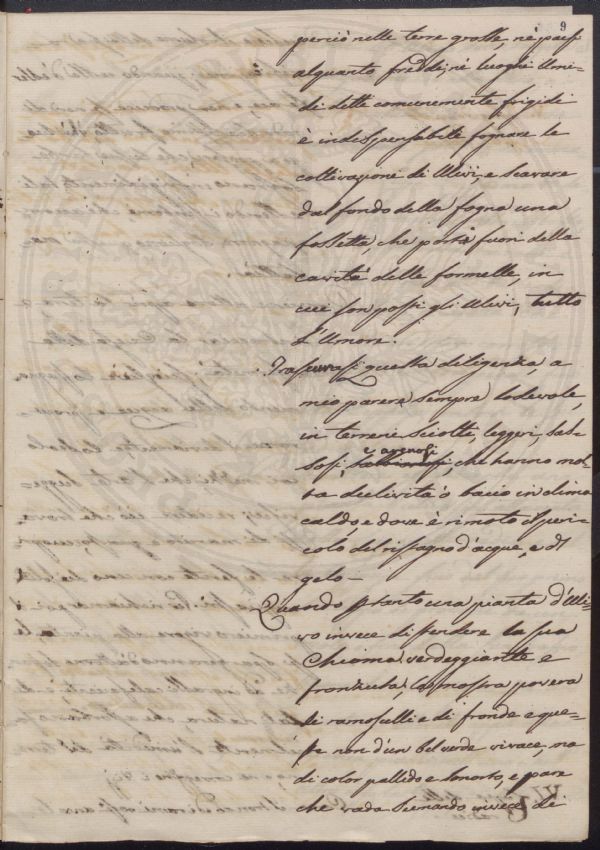 9
perciò nelle terre grosse, ne' paesi
alquanto freddi, nè luoghi umi-
di detti comunemente frigidi
è indispensabile fognare le
coltivazione di Ulivi, e scavare
dal fondo della fogna una
fossetta, che porti fuori della
cavità delle formelle, in
cui son posti gli Ulivi, tutto
l'Umore.
Trascurasi questa diligenza, a
mio parere sempre lodevole,
in terreni sciolti, leggeri, sas-
sosi, e arenosi, che hanno mol-
ta declività o bacio in clima
caldo, e dove è rimoto il peri-
colo del ristagno d'acque, e di
gelo —
Quando pertanto una pianta d'Uli-
vo invece di stendere la sua
Chioma verdeggiante e
fronzuta, la mostra povera
di ramoscelli e di fronde e que-
ste non d'un bel verde vivace, ma
di color pallido e smorto, e pare
che vada scemando invece di